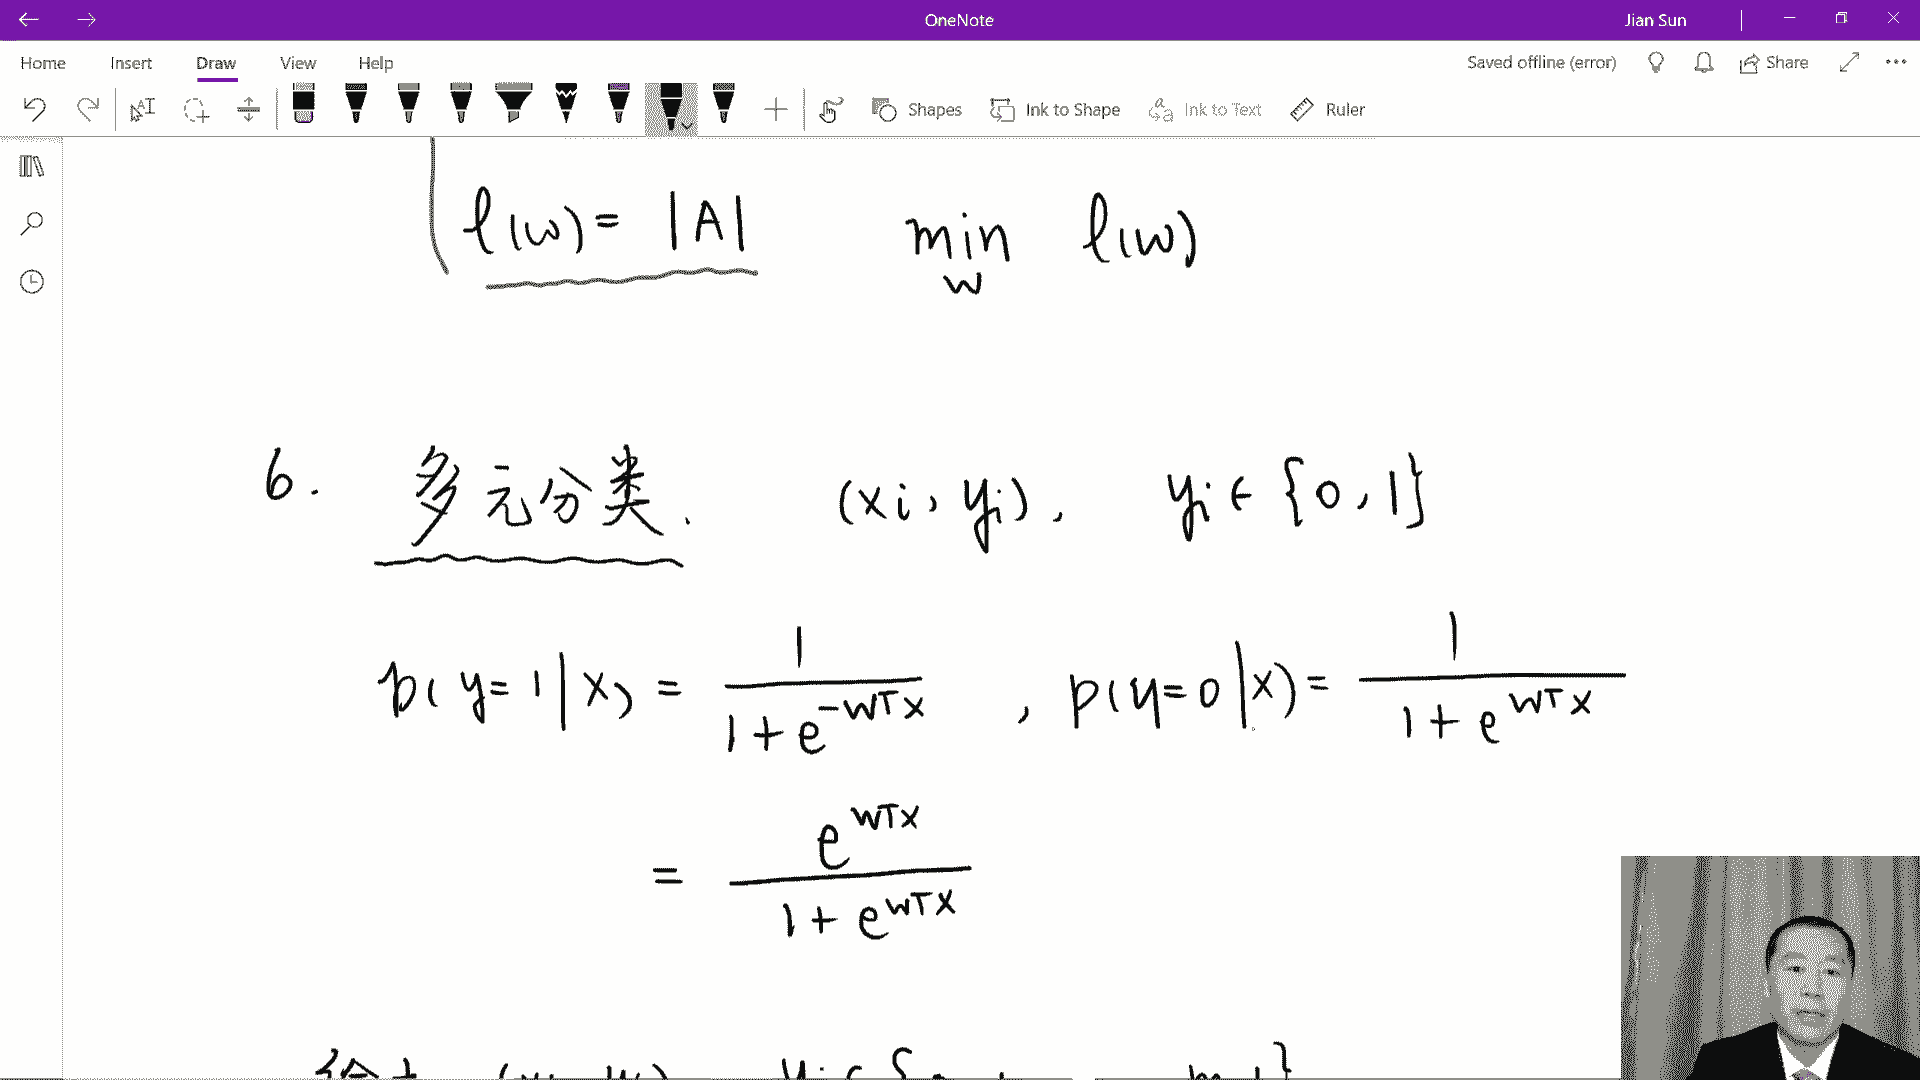 OneNote Jian Sun
Home Insert Draw View Help Saved offline (error) Share
Shapes Ink to Shape Ink to Text Ruler
l(w) = |A| min l(w)
w
6. 多元分类. (xi, yi), yi ∈ {0, 1}
p(y=1|x) = 1/(1+e^(-wTx)), p(y=0|x) = 1/(1+e^(wTx))
= e^(wTx)/(1+e^(wTx))